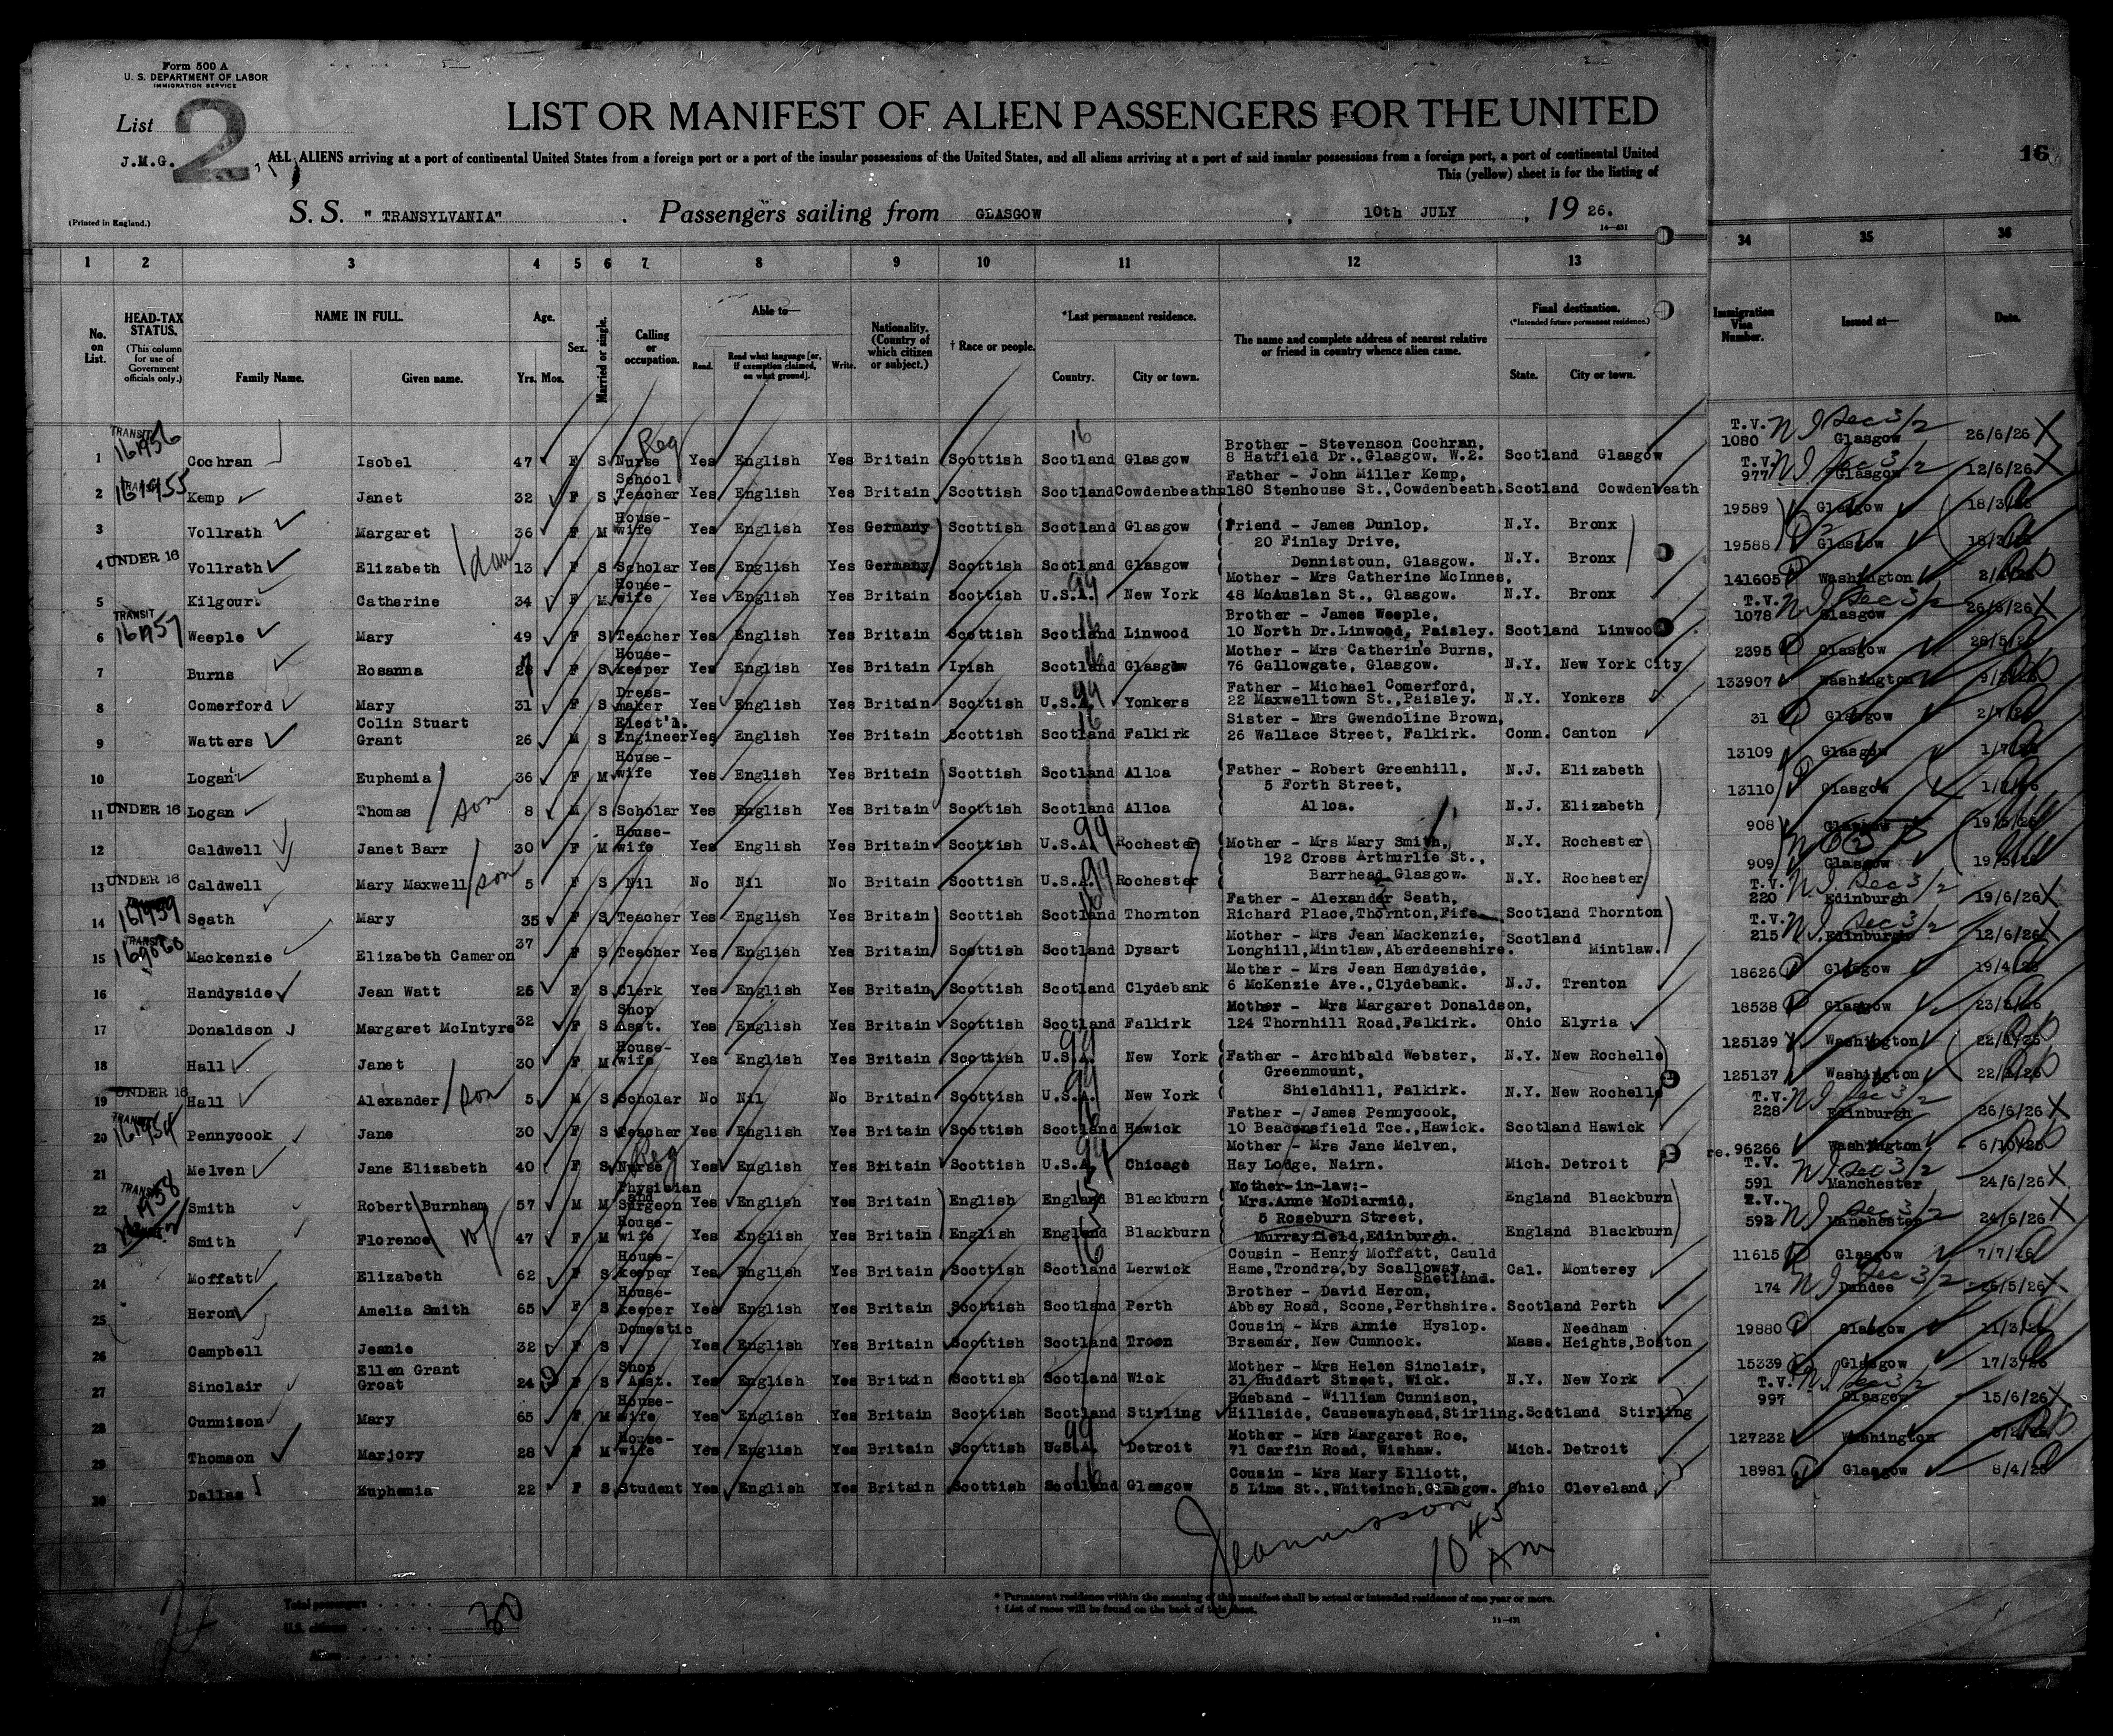 Form 500 A
U. S. DEPARTMENT OF LABOR
IMMIGRATION SERVICE
List 2
J.M.G.
LIST OR MANIFEST OF ALIEN PASSENGERS FOR THE UNITED
16
ALL ALIENS arriving at a port of continental United States from a foreign port or a port of the insular possessions of the United States, and all aliens arriving at a port of said insular possessions from a foreign port, a port of continental United
This (yellow) sheet is for the listing of
(Printed in England.)
S. S. " TRANSYLVANIA" . Passengers sailing from GLASGOW , 10th JULY , 19 26.
14—431
1 2 3 4 5 6 7 8 9 10 11 12 13 34 35 36
No. on List.
HEAD-TAX STATUS.
(This column for use of Government officials only.)
NAME IN FULL.
Family Name. Given name.
Age.
Yrs. Mos.
Sex.
Married or single.
Calling or occupation.
Able to—
Read. Read what language [or, if exemption claimed, on what ground]. Write.
Nationality. (Country of which citizen or subject.)
† Race or people.
*Last permanent residence.
Country. City or town.
The name and complete address of nearest relative or friend in country whence alien came.
Final destination.
(*Intended future permanent residence.)
State. City or town.
Immigration Visa Number.
Issued at—
Date.
1 TRANSIT 161956 Cochran Isobel 47 F S Nurse Reg Yes English Yes Britain Scottish Scotland Glasgow Brother - Stevenson Cochran, 8 Hatfield Dr.,Glasgow, W.2. Scotland Glasgow T.V. 1080 N I Sec 3/2 Glasgow 26/6/26
2 161955 Kemp Janet 32 F S School Teacher Yes English Yes Britain Scottish Scotland Cowdenbeath Father - John Miller Kemp, 180 Stenhouse St.,Cowdenbeath. Scotland Cowdenbeath T.V. 977 N I Sec 3/2 Glasgow 12/6/26
3 Vollrath Margaret 36 F M House-wife Yes English Yes Germany Scottish Scotland Glasgow Friend - James Dunlop, N.Y. Bronx 19589 Glasgow 18/3/26
20 Finlay Drive,
4 UNDER 16 Vollrath Elizabeth dau 13 F S Scholar Yes English Yes Germany Scottish Scotland Glasgow Dennistoun, Glasgow. N.Y. Bronx 19588 Glasgow 18/3/26
5 Kilgour Catherine 34 F M House-wife Yes English Yes Britain Scottish U.S.A. New York Mother - Mrs Catherine McInnes, 48 McAuslan St., Glasgow. N.Y. Bronx 141605 Washington
6 TRANSIT 161957 Weeple Mary 49 F S Teacher Yes English Yes Britain Scottish Scotland Linwood Brother - James Weeple, 10 North Dr.Linwood, Paisley. Scotland Linwood T.V. 1078 N I Sec 3/2 Glasgow 26/6/26
7 Burns Rosanna F S House-keeper Yes English Yes Britain Irish Scotland Glasgow Mother - Mrs Catherine Burns, 76 Gallowgate, Glasgow. N.Y. New York City 2395 Glasgow 28/5/26
8 Comerford Mary 31 F S Dress-maker Yes English Yes Britain Scottish U.S.A. Yonkers Father - Michael Comerford, 22 Maxwelltown St.,Paisley. N.Y. Yonkers 133907 Washington
9 Watters Colin Stuart Grant 26 M S Elect'l. Engineer Yes English Yes Britain Scottish Scotland Falkirk Sister - Mrs Gwendoline Brown, 26 Wallace Street, Falkirk. Conn. Canton 31 Glasgow 2/7/26
10 Logan Euphemia 36 F M House-wife Yes English Yes Britain Scottish Scotland Alloa Father - Robert Greenhill, N.J. Elizabeth 13109 Glasgow 1/7/26
5 Forth Street,
11 UNDER 16 Logan Thomas son 8 M S Scholar Yes English Yes Britain Scottish Scotland Alloa Alloa. N.J. Elizabeth 13110 Glasgow
12 Caldwell Janet Barr 30 F M House-wife Yes English Yes Britain Scottish U.S.A. Rochester Mother - Mrs Mary Smith, N.Y. Rochester 908 Glasgow 19/5/26
192 Cross Arthurlie St.,
13 UNDER 16 Caldwell Mary Maxwell son 5 F S Nil No Nil No Britain Scottish U.S.A. Rochester Barrhead Glasgow. N.Y. Rochester 909 Glasgow 19/5/26
14 161959 Seath Mary 35 F S Teacher Yes English Yes Britain Scottish Scotland Thornton Father - Alexander Seath, Richard Place,Thornton,Fife Scotland Thornton T.V. 220 N.I. Sec 3/2 Edinburgh 19/6/26
15 TRANSIT Mackenzie Elizabeth Cameron 37 F S Teacher Yes English Yes Britain Scottish Scotland Dysart Mother - Mrs Jean Mackenzie, Longhill,Mintlaw,Aberdeenshire. Scotland Mintlaw. T.V. 215 N I Sec 3/2 Edinburgh 12/6/26
16 Handyside Jean Watt 26 F S Clerk Yes English Yes Britain Scottish Scotland Clydebank Mother - Mrs Jean Handyside, 6 McKenzie Ave.,Clydebank. N.J. Trenton 18626 Glasgow 19/4/26
17 Donaldson Margaret McIntyre 32 F S Shop Asst. Yes English Yes Britain Scottish Scotland Falkirk Mother - Mrs Margaret Donaldson, 124 Thornhill Road,Falkirk. Ohio Elyria 18538 Glasgow
18 Hall Janet 30 F M House-wife Yes English Yes Britain Scottish U.S.A. New York Father - Archibald Webster, N.Y. New Rochelle 125139 Washington
Greenmount,
19 UNDER 16 Hall Alexander son 5 M S Scholar No Nil No Britain Scottish U.S.A. New York Shieldhill, Falkirk. N.Y. New Rochelle 125137 Washington
20 TRANSIT 161954 Pennycook Jane 30 F S Teacher Yes English Yes Britain Scottish Scotland Hawick Father - James Pennycook, 10 Beaconsfield Tce.,Hawick. Scotland Hawick T.V. 228 N I Sec 3/2 Edinburgh 26/6/26
21 Melven Jane Elizabeth 40 F S Nurse Reg Yes English Yes Britain Scottish U.S.A. Chicago Mother - Mrs Jane Melven, Hay Lodge, Nairn. Mich. Detroit re.96266 Washington
22 TRANSIT Smith Robert Burnham 57 M M Physician and Surgeon Yes English Yes Britain English England Blackburn Mother-in-law:- Mrs.Anne McDiarmid, England Blackburn T.V. 591 N I Sec 3/2 Manchester 24/6/26
5 Roseburn Street,
23 Smith Florence wf 47 F M House-wife Yes English Yes Britain English England Blackburn Murrayfield,Edinburgh. England Blackburn T.V. 592 N I Sec 3/2 Manchester 24/6/26
24 Moffatt Elizabeth 62 F S House-keeper Yes English Yes Britain Scottish Scotland Lerwick Cousin - Henry Moffatt, Cauld Hame,Trondra,by Scalloway, Shetland. Cal. Monterey 11615 Glasgow 7/7/26
25 Heron Amelia Smith 65 F S House-keeper Yes English Yes Britain Scottish Scotland Perth Brother - David Heron, Abbey Road, Scone,Perthshire. Scotland Perth 174 N I Sec 3/2 Dundee 26/5/26
26 Campbell Jeanie 32 F S Domestic Yes English Yes Britain Scottish Scotland Troon Cousin - Mrs Annie Hyslop. Braemar, New Cumnock. Mass. Needham Heights,Boston 19880 Glasgow 11/3/26
27 Sinclair Ellen Grant Groat 24 9 F S Shop Asst. Yes English Yes Britain Scottish Scotland Wick Mother - Mrs Helen Sinclair, 31 Huddart Street, Wick. N.Y. New York 15339 Glasgow 17/3/26
28 Cunnison Mary 65 F M House-wife Yes English Yes Britain Scottish Scotland Stirling Husband - William Cunnison, Hillside, Causewayhead,Stirling. Scotland Stirling T.V. 997 N I Sec 3/2 Glasgow 15/6/26
29 Thomson Marjory 28 F M House-wife Yes English Yes Britain Scottish U.S.A. Detroit Mother - Mrs Margaret Roe, 71 Carfin Road, Wishaw. Mich. Detroit 127232 Washington
30 Dallas Euphemia 22 F S Student Yes English Yes Britain Scottish Scotland Glasgow Cousin - Mrs Mary Elliott, 5 Lime St.,Whiteinch,Glasgow. Ohio Cleveland 18981 Glasgow 8/4/26
10 45 AM
Total passengers 30
U.S. citizens
Aliens
* Permanent residence within the meaning of this manifest shall be actual or intended residence of one year or more.
† List of races will be found on the back of this sheet.